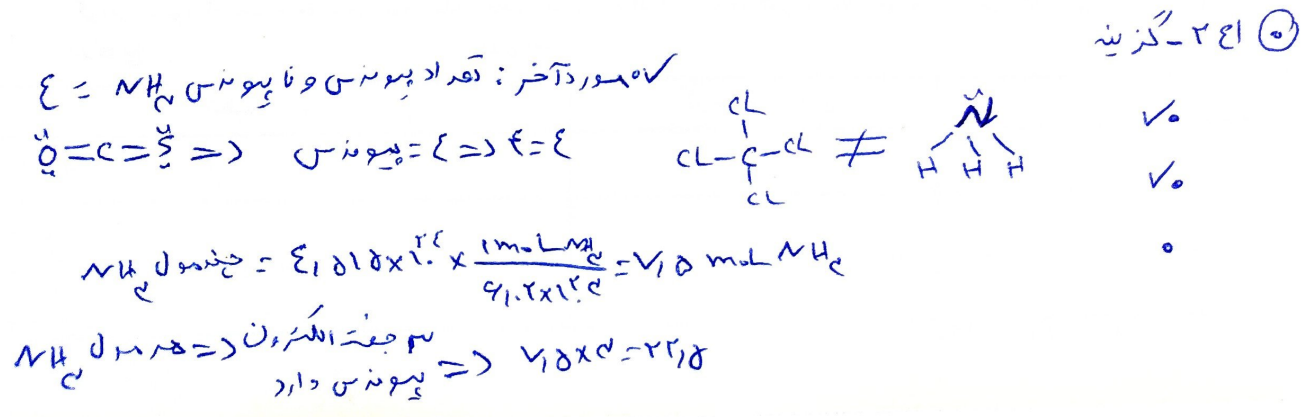 ۲۴۱- گزینه
✓ مورد آخر: تعداد پیوندی و ناپیوندی NH۳ = ۴
Ö=C=S̈ => پیوندی = ۴ => ۴=۴
CL
CL-C-CL ≠ N̈
CL H H H
چند مول NH۳ = ۴,۵۱۵×۱۰^۲۴ × ۱ mol NH۳ / ۶,۰۲×۱۰^۲۳ = ۷,۵ mol NH۳
هر مول NH۳ => ۳ جفت الکترون پیوندی دارد => ۷,۵×۳=۲۲,۵